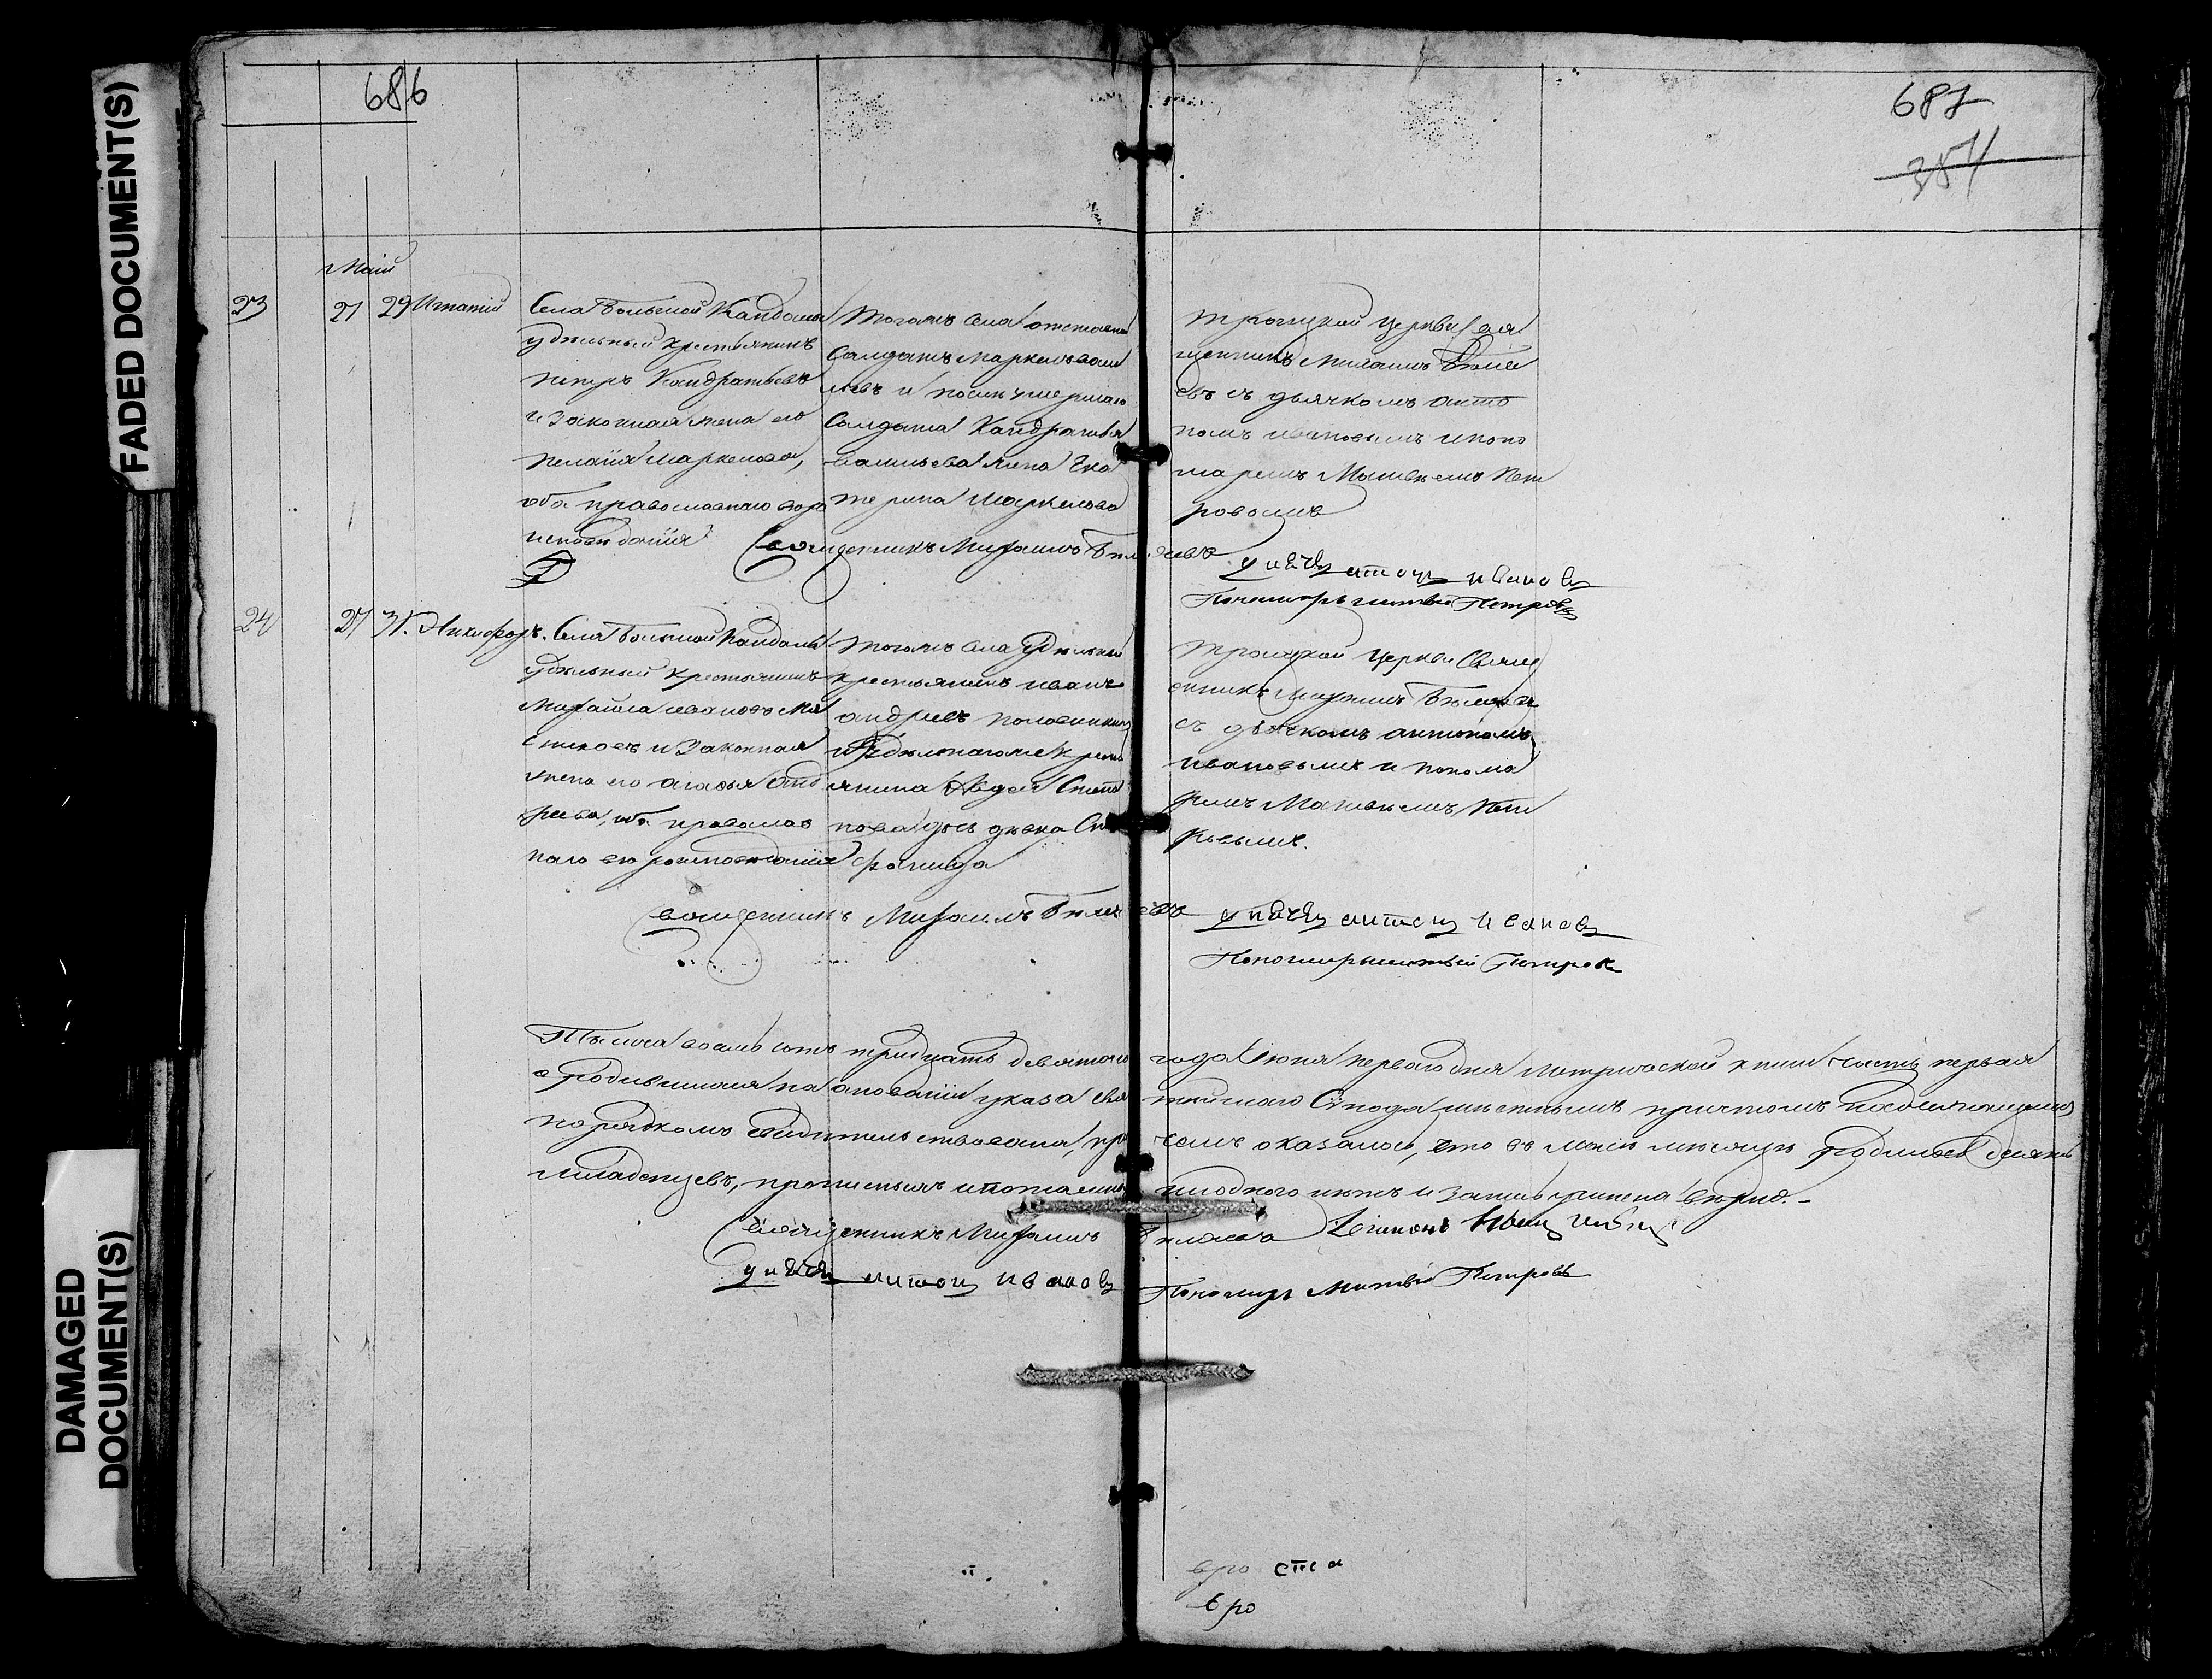 FADED DOCUMENT(S)
DAMAGED DOCUMENT(S)
686
687
354
Маiй
23
21
29
Игнатiй
Села Большой Кандалы
удѣльный крестьянинъ
Петръ Кондратьевъ
и законная жена его
Пелагiя Маркелова,
оба православнаго вѣро
исповѣданiя
Тогожъ села отставной
солдатъ Маркелъ Васи
льевъ и умершаго
солдата Кандратья
Васильева жена Ека
терина Маркелова
Троицкой церкви свя
щенникъ Михаилъ Бѣляе
въ съ дьячкомъ Анто
номъ Ивановымъ и поно
маремъ Матвѣемъ Пет
ровымъ
Священникъ Михаилъ Бѣляевъ
Дьячекъ Антонъ Ивановъ
Пономарь Матвѣй Петровъ
24
27
31.
Никифоръ.
Села Большой Кандалы
удѣльный крестьянинъ
Михайла Ивановъ
и законная
жена его Агафья Анд
реева, оба православ
наго вѣроисповѣданiя
Тогожъ села удѣльный
крестьянинъ Иванъ
Андреевъ Половинкинъ
и удѣльнагоже кресть
янина Авдея Степа
нова дочь дѣвка
Троицкой церкви свяще
нникъ Михаилъ Бѣляевъ
съ дьячкомъ Антономъ
Ивановымъ и понома
ремъ Матвѣемъ Пет
ровымъ.
Священникъ Михаилъ Бѣляевъ
Дьячекъ Антонъ Ивановъ
Пономарь Матвѣй Петровъ
Тысяча восемь сотъ тридцать девятаго года Iюня перваго дня метрической книги часть первая
о родившихся на основанiи указа Святѣйшаго Сѵнода мѣстнымъ причтомъ надлежащимъ
порядкомъ свидѣтельствована, при чемъ оказалось, что въ Маiи мѣсяцѣ родилось десять
младенцевъ, пропискъ и ни одного нѣтъ и запись учинена вѣрно.
Священникъ Михаилъ Бѣляевъ
Дьячекъ Антонъ Ивановъ
Пономарь Матвѣй Петровъ